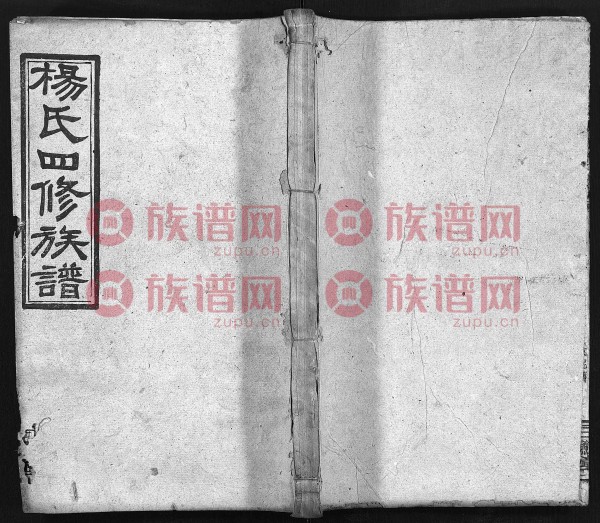 楊氏四修族譜
族谱网 族谱网
zupu.cn zupu.cn
族谱网 族谱网
zupu.cn zupu.cn